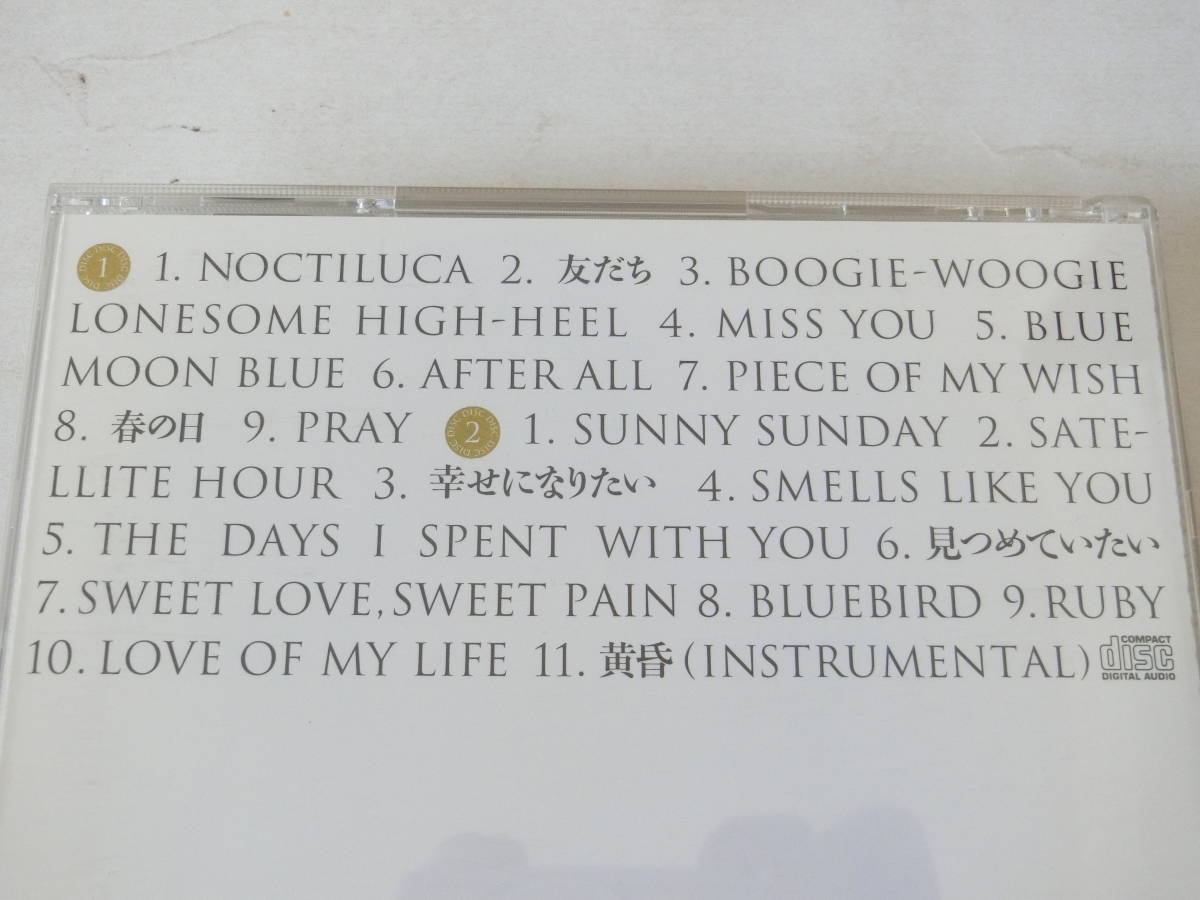 1 1. NOCTILUCA 2. 友だち 3. BOOGIE-WOOGIE
LONESOME HIGH-HEEL 4. MISS YOU 5. BLUE
MOON BLUE 6. AFTER ALL 7. PIECE OF MY WISH
8. 春の日 9. PRAY DISC DISC DISC DISC DISC 2 1. SUNNY SUNDAY 2. SATE-
LLITE HOUR 3. 幸せになりたい 4. SMELLS LIKE YOU
5. THE DAYS I SPENT WITH YOU 6. 見つめていたい
7. SWEET LOVE, SWEET PAIN 8. BLUEBIRD 9. RUBY
10. LOVE OF MY LIFE 11. 黄昏 (INSTRUMENTAL) COMPACT
disc
DIGITAL AUDIO